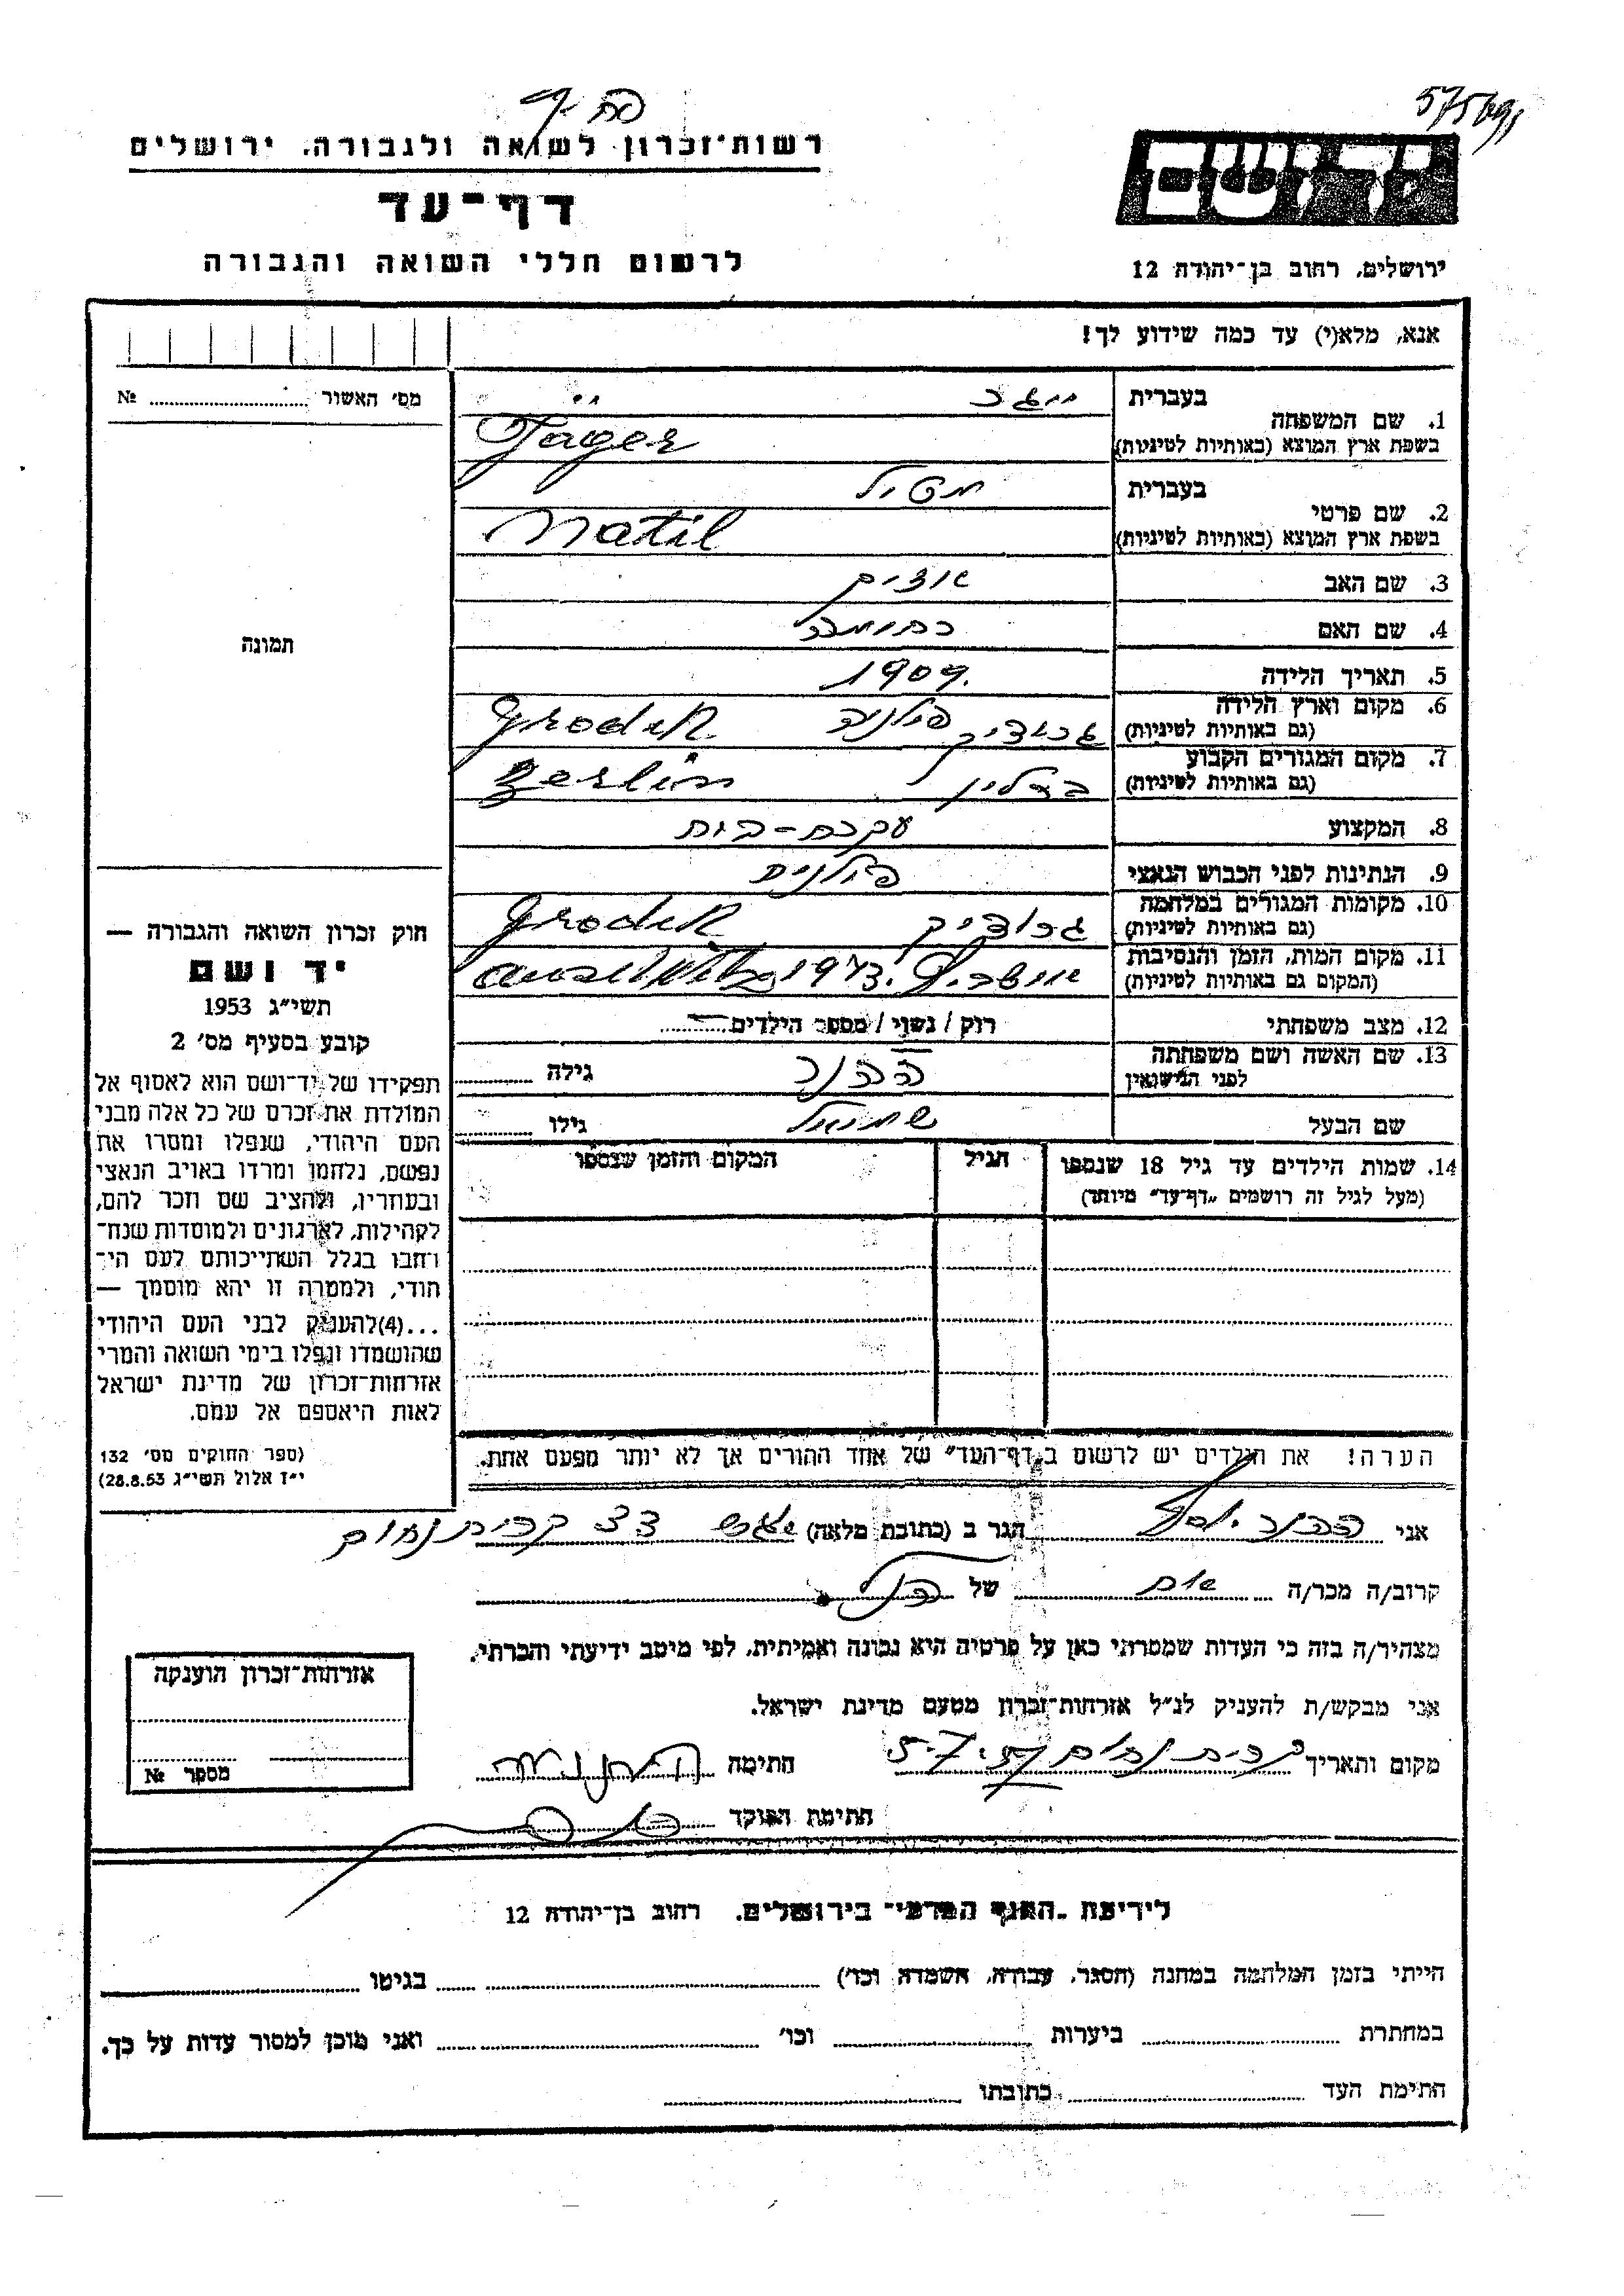 575691
רשות־זכרון לשואה ולגבורה, ירושלים
דף־עד
לרשום חללי השואה והגבורה
יד ושם
ירושלים, רחוב בן־יהודה 12
אנא, מלא(י) עד כמה שידוע לך!
מס' האשור № 
1. שם המשפחה
בעברית ייגר
בשפת ארץ המוצא (באותיות לטיניות) Jäger
2. שם פרטי
בעברית מטיל
בשפת ארץ המוצא (באותיות לטיניות) Matil
3. שם האב
4. שם האם
5. תאריך הלידה 1909
6. מקום וארץ הלידה
(גם באותיות לטיניות) גרודיק פולניה Grodek
7. מקום המגורים הקבוע
(גם באותיות לטיניות) ברלין Berlin
8. המקצוע עקרת-בית
9. הנתינות לפני הכבוש הנאצי פולנית
10. מקומות המגורים במלחמה
(גם באותיות לטיניות) גרודיק Grodek
11. מקום המות, הזמן והנסיבות
(המקום גם באותיות לטיניות) 1943
12. מצב משפחתי רוק / נשוי / מספר הילדים
13. שם האשה ושם משפחתה
לפני הנישואין גילה
שם הבעל שמואל גילו
14. שמות הילדים עד גיל 18 שנספו הגיל המקום והזמן שנספו
(מעל לגיל זה רושמים "דף־עד" מיוחד)
תמונה
חוק זכרון השואה והגבורה —
יד ושם
תשי"ג 1953
קובע בסעיף מס' 2
תפקידו של יד־ושם הוא לאסוף אל
המולדת את זכרם של כל אלה מבני
העם היהודי, שנפלו ומסרו את
נפשם, נלחמו ומרדו באויב הנאצי
ובעוזריו, ולהציב שם וזכר להם,
לקהילות, לארגונים ולמוסדות שנח־
רבו בגלל השתייכותם לעם הי־
הודי, ולמטרה זו יהא מוסמך —
...(4)להעניק לבני העם היהודי
שהושמדו ונפלו בימי השואה והמרי
אזרחות־זכרון של מדינת ישראל
לאות היאספם אל עמם.
(ספר החוקים מס' 132
י"ז אלול תשי"ג 28.8.53)
הערה! את הילדים יש לרשום ב"דף־העד" של אחד ההורים אך לא יותר מפעם אחת.
אני יוסף הגר ב (כתובת מלאה) קרית נחום
קרוב/ה מכר/ה אח של הנ"ל
מצהיר/ה בזה כי העדות שמסרתי כאן על פרטיה היא נכונה ואמיתית, לפי מיטב ידיעתי והכרתי.
אני מבקש/ת להעניק לנ"ל אזרחות־זכרון מטעם מדינת ישראל.
מקום ותאריך קרית נחום 5.7.57 חתימה
חתימת הפוקד
אזרחות־זכרון הוענקה
מספר №
לידיעת "הגוף המרכזי" בירושלים, רחוב בן־יהודה 12
הייתי בזמן המלחמה במחנה (הסגר, עבודה, השמדה וכו') בגיטו
במחתרת ביערות וכו' ואני מוכן למסור עדות על כך.
חתימת העד כתובתו